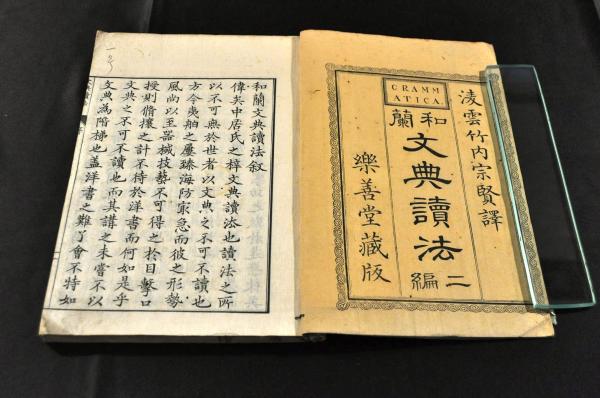 凌雲竹内宗賢譯
GRAMM
ATICA.
和蘭
文典讀法
二編
樂善堂藏版
和蘭文典讀法叙
偉其中居氏之梓文典讀法也讀法之所
以不可無於世者以文典之不可不讀也
方今夷舶之屢臻海防急而彼之形勢
風尚以至器械技藝不可得之於目擊口
授則脩攘之計不待於洋書而何如是乎
文典之不可不讀也而其講之未嘗不以
文典為階梯也盖洋書之難了會不特如